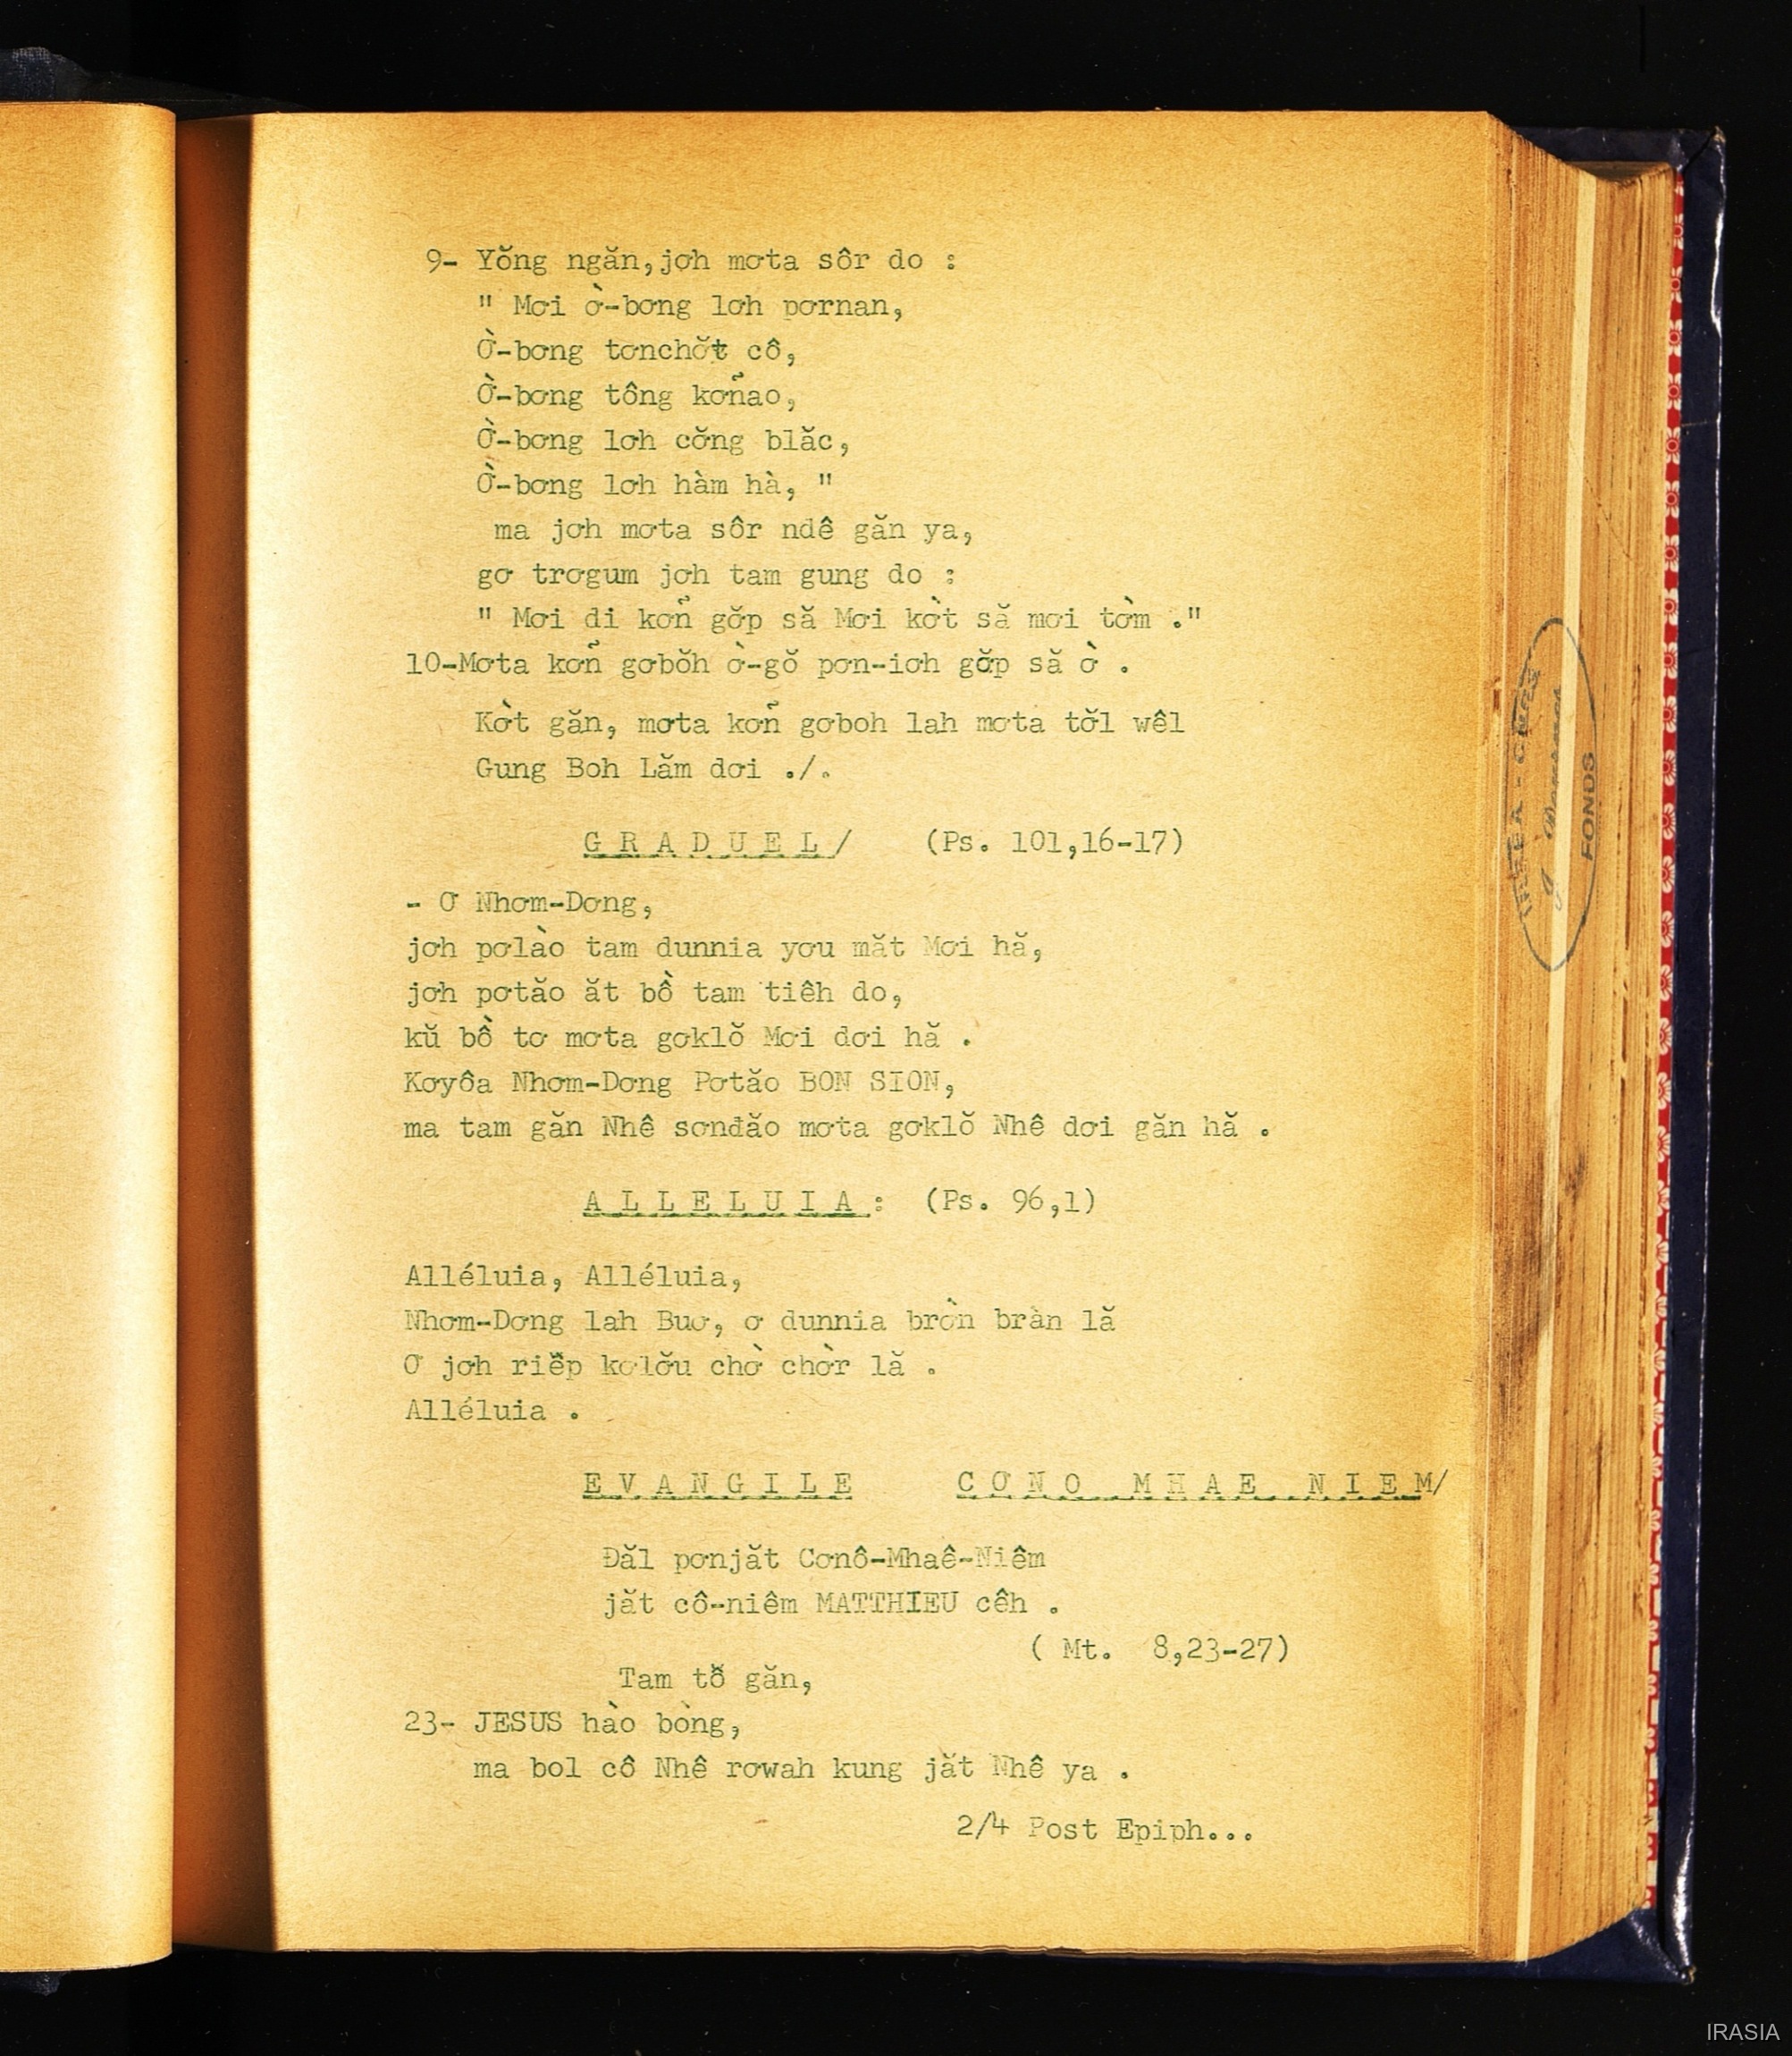 9- Yŏng ngăn,jơh mơta sôr do :
" Mơi ờ-bơng lơh pơrnan,
Ờ-bơng tơnchơ̆t cô,
Ờ-bơng tông kơñao,
Ờ-bơng lơh cơ̆ng blăc,
Ờ-bơng lơh hàm hà, "
ma jơh mơta sôr ndê găn ya,
gơ trơgum jơh tam gung do :
" Mơi di kơñ gơ̆p să Mơi kờt să mơi tờm ."
10-Mơta kơñ gơbŏh ờ-gŏ pơn-iơh gơ̆p să ờ .
Kờt găn, mơta kơñ gơboh lah mơta tơ̆l wêl
Gung Boh Lăm dơi ./.
G R A D U E L / (Ps. 101,16-17)
- Ơ Nhơm-Dơng,
jơh pơlào tam dunnia yơu măt Mơi hă,
jơh pơtăo ăt bồ tam tiêh do,
kŭ bồ tơ mơta gơklŏ Mơi dơi hă .
Kơyôa Nhơm-Dơng Pơtăo BON SION,
ma tam găn Nhê sơnđăo mơta gơklŏ Nhê dơi găn hă .
A L L E L U I A : (Ps. 96,1)
Alléluia, Alléluia,
Nhơm-Dơng lah Buơ, ơ dunnia bròn bràn lă
Ơ jơh riê̆p kơlơ̆u chờ chờr lă .
Alléluia .
E V A N G I L E C Ơ N O M H A E N I E M/
Đăl pơnjăt Cơnô-Mhaê-Niêm
jăt cô-niêm MATTHIEU cêh .
( Mt. 8,23-27)
Tam tô̆ găn,
23- JESUS hào bòng,
ma bol cô Nhê rơwah kung jăt Nhê ya .
2/4 Post Epiph...
FONDS
IRASIA